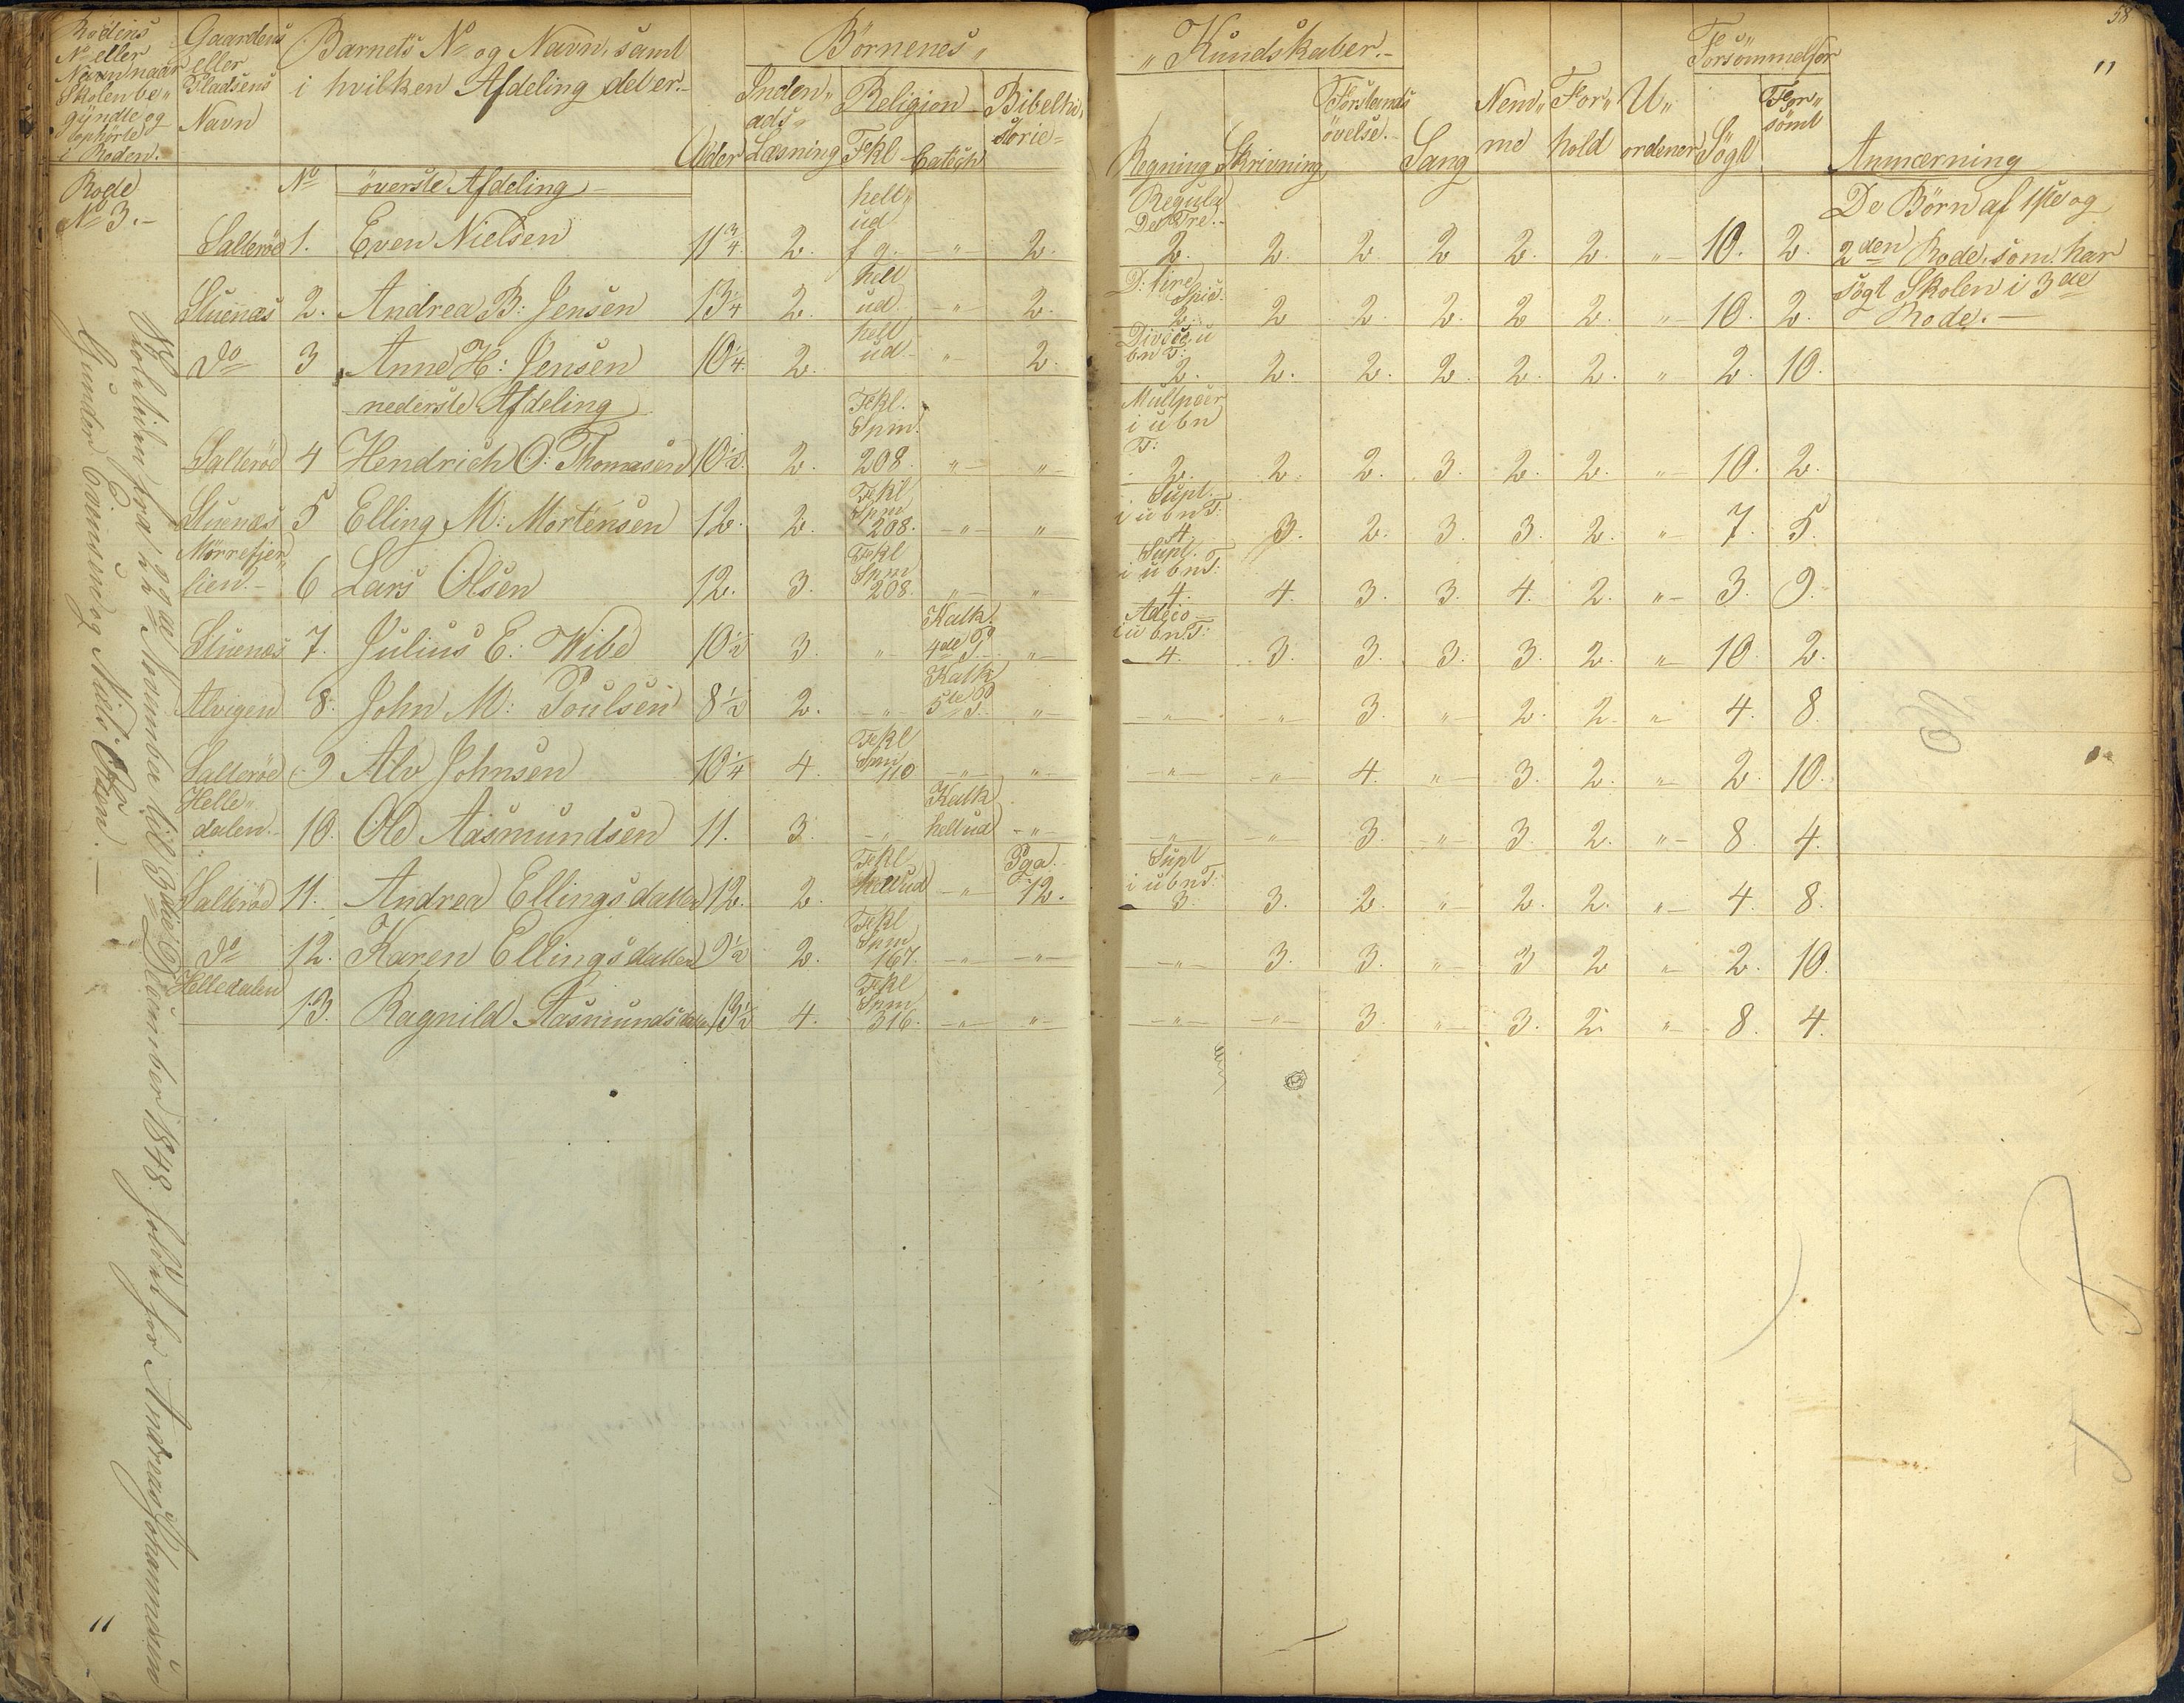 58
11
Rodens No eller Navn, naar Skolen be„gyndte og ophörte i Roden.
Gaardens eller Pladsens Navn
Barnets No og Navn, samt i hvilken Afdeling det er.
Alder
Börnenes „
„ Kundskaber.
Inden„ads Læsning
Religion
Fkl
Catech
Bibelhi„storie
Regning
Skrivning
Forstands övelse.
Sang
Nem„me
For„hold
U„ordener
Forsömmelser
Sögt
For„sömt
Anmærning
Rode No 3.
No överste Afdeling
Salteröd 1. Even Nielsen 11 3/4. 2. helt ud f g. „ 2. Regula De Tre. 2. 2. 2. 2 2. 2. „ 10. 2.
Stuenæs 2. Andrea B: Jensen 13 1/4 2. helt ud. „ 2. D: fire Spis. 2. 2 2. 2. 2 2. „ 10. 2.
Do 3 Anne H: Jensen 10 1/4. 2. helt ud „ 2. Divsio i u bn T: 2. 2. 2. 2. 2. 2. „ 2. 10.
De Börn af 1ste og
2den Rode, som har
sögt Skolen i 3de
Rode.
nederste Afdeling
Salteröd 4 Hendrich O: Thomasen 10 1/2. 2. Fkl. Spm. 208. „ „ Multpcer i u bn T: 2. 2. 2. 3. 2. 2. „ 10. 2.
Stuenæs 5 Elling M: Mortensen 12. 2. Fkl Spm 208. „ „ Supt. i u bn T. 4 3. 2. 3. 3. 2. „ 7. 5.
Mörrefjer„lien. 6 Lars Olsen 12. 3. Fkl Spm 208. „ „ Supt. i u bn T: 4. 4. 3. 3. 4. 2. „ 3. 9.
Stuenæs 7. Julius E: Wibe 10 1/2 3. „ Katk. 4de P „ Adcio i u bn T: 4. 3. 3. 3. 3. 2. „ 10. 2.
Alvigen 8. John M: Poulsen 8 1/2 2. „ Katk 5te P. „ „ „ 3. „ 2. 2. „ 4. 8.
Salteröd 9 Alv Johnsen 10 1/4 4. Fkl Spm 110 „ „ „ „ 4. „ 3. 2. „ 2. 10.
Helle„dalen. 10. Ole Aasmundsen 11. 3. „ Katk helt ud „ „ „ 3. „ 3. 2. „ 8 4.
Salteröd 11. Andrea Ellingsdatter 12. 2. Fkl helt ud „ Pga T: 12. Supt i u bn T: 3. 3. 2. „ 2. 2. „ 4. 8.
Do 12. Karen Ellingsdatter 9 1/2 2. Fkl Spm 167. „ „ „ 3. 3. „ 3 2 „ 2. 10.
Helledalen 13. Ragnild Aasmundsdatter 13 1/2 4. Fkl Spm 316. „ „ „ „ 3. „ 3. 2. „ 8. 4.
Skoletiden fra 22de November til 9de December 1848. holdt for Andreas Johannesen
Gunder Evensen og Niels Olsen.
11